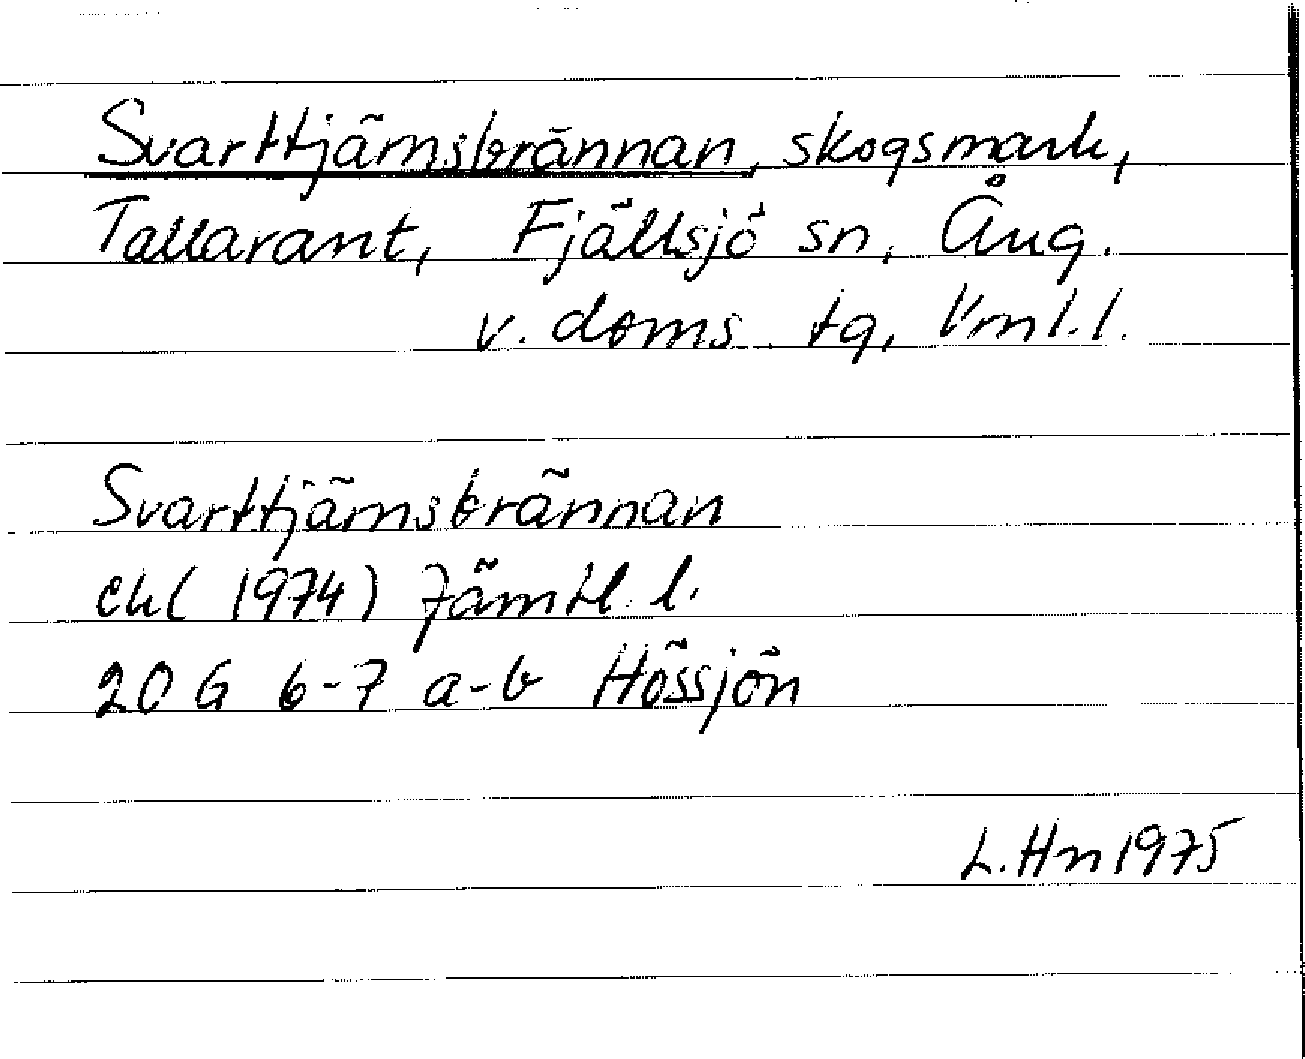 Svarttjärnsbrännan, skogsmark,
Tallarant, Fjällsjö sn, Ång.
v. doms. tg, Vnl. l.
Svarttjärnsbrännan
ek( 1974) Jämtl. l.
20 G 6-7 a-b Hössjön
L. Hn 1975